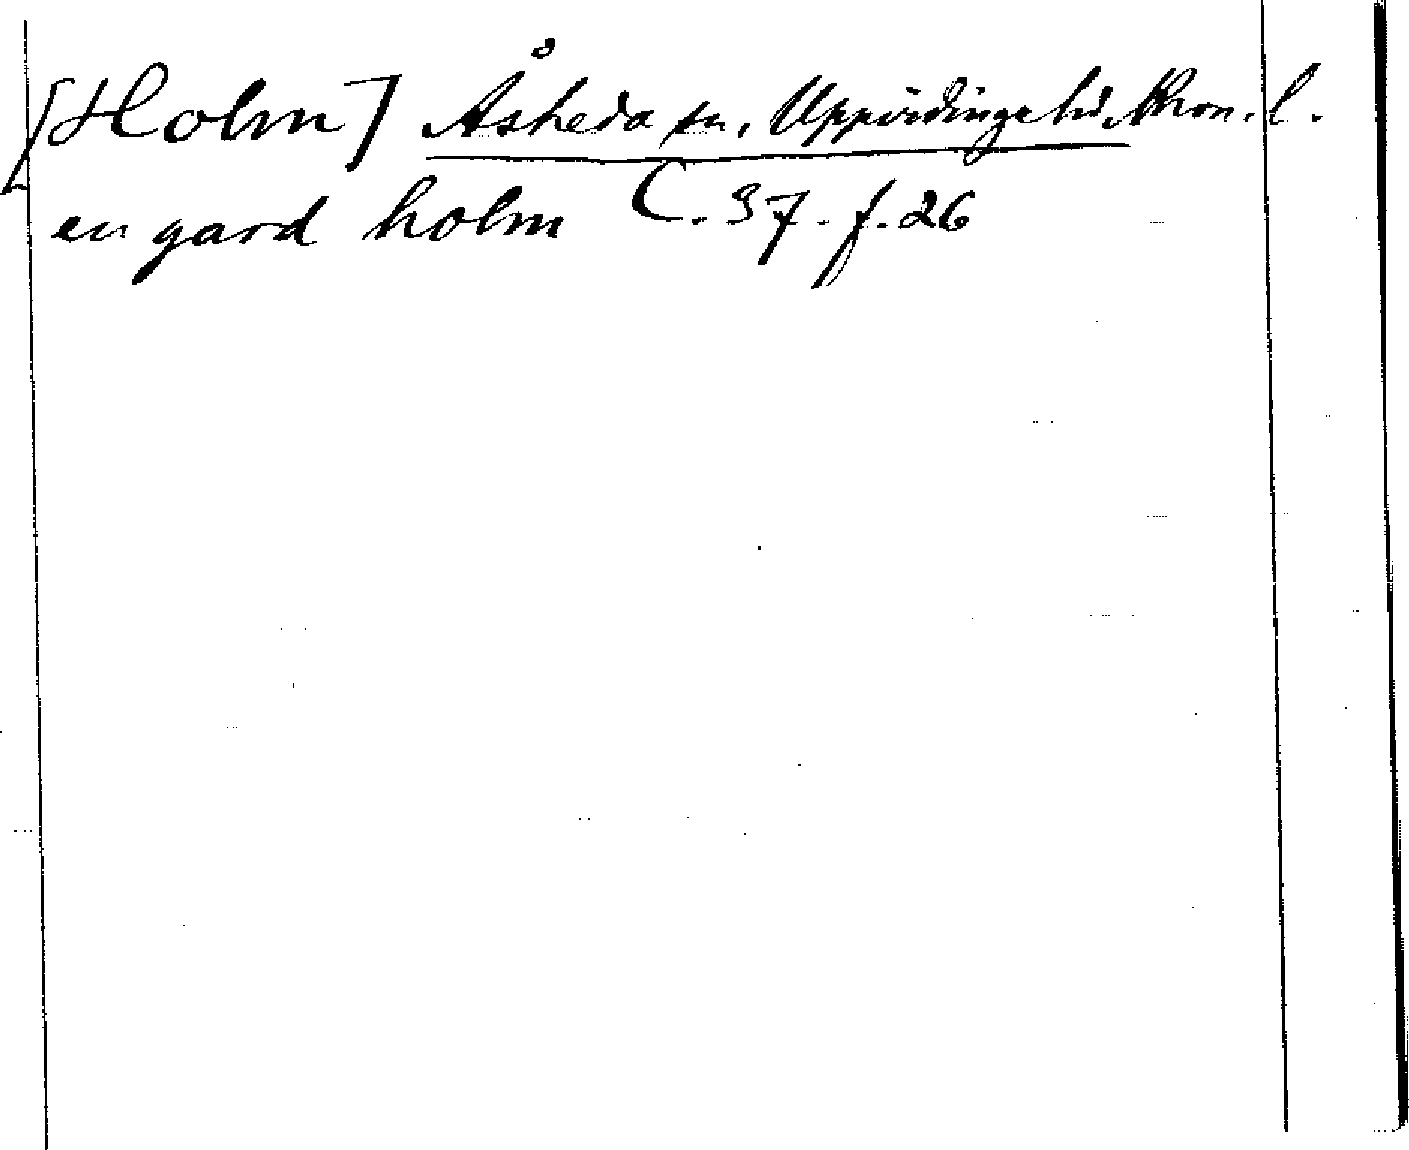 [Holm] Åsheda sn, Uppvidinge hd, Kron. l.
en gard holm C. 37. f. 26